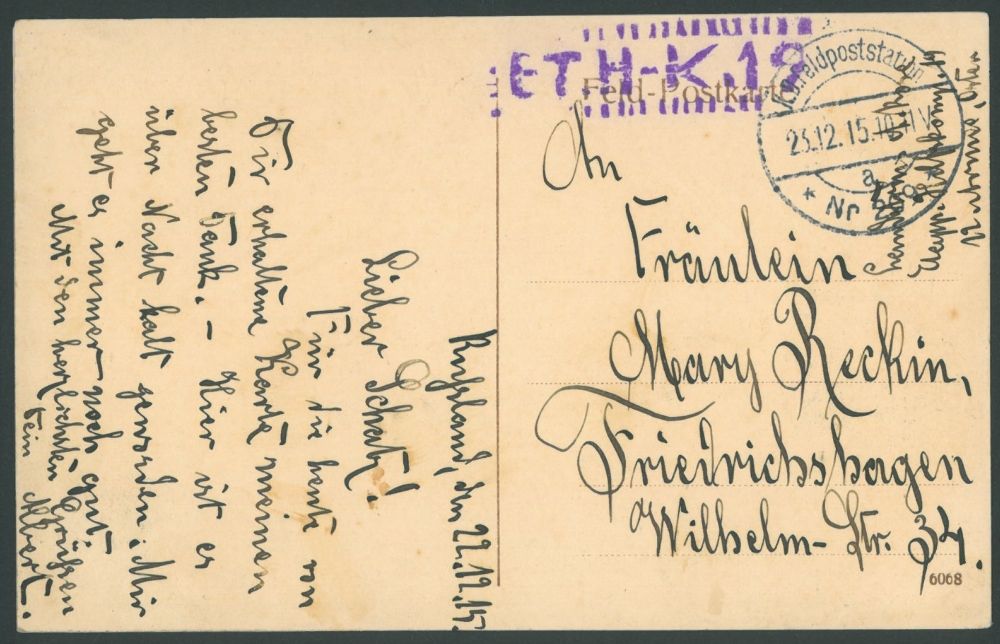 Rußland, den 22.12.15.
Lieber Schatz!
Für die heute von
Dir erhaltene Karte meinen
besten Dank. – Hier ist es
über Nacht kalt geworden. Mir
geht es immer noch gut.
Mit den herzlichsten Grüßen
Dein Albert.
ETH-K.19
Feld-Postkarte
Feldpoststation
23.12.15.
a
* Nr
An
Fräulein
Mary Reckin,
Friedrichshagen
Wilhelm-Str. 34.
6068